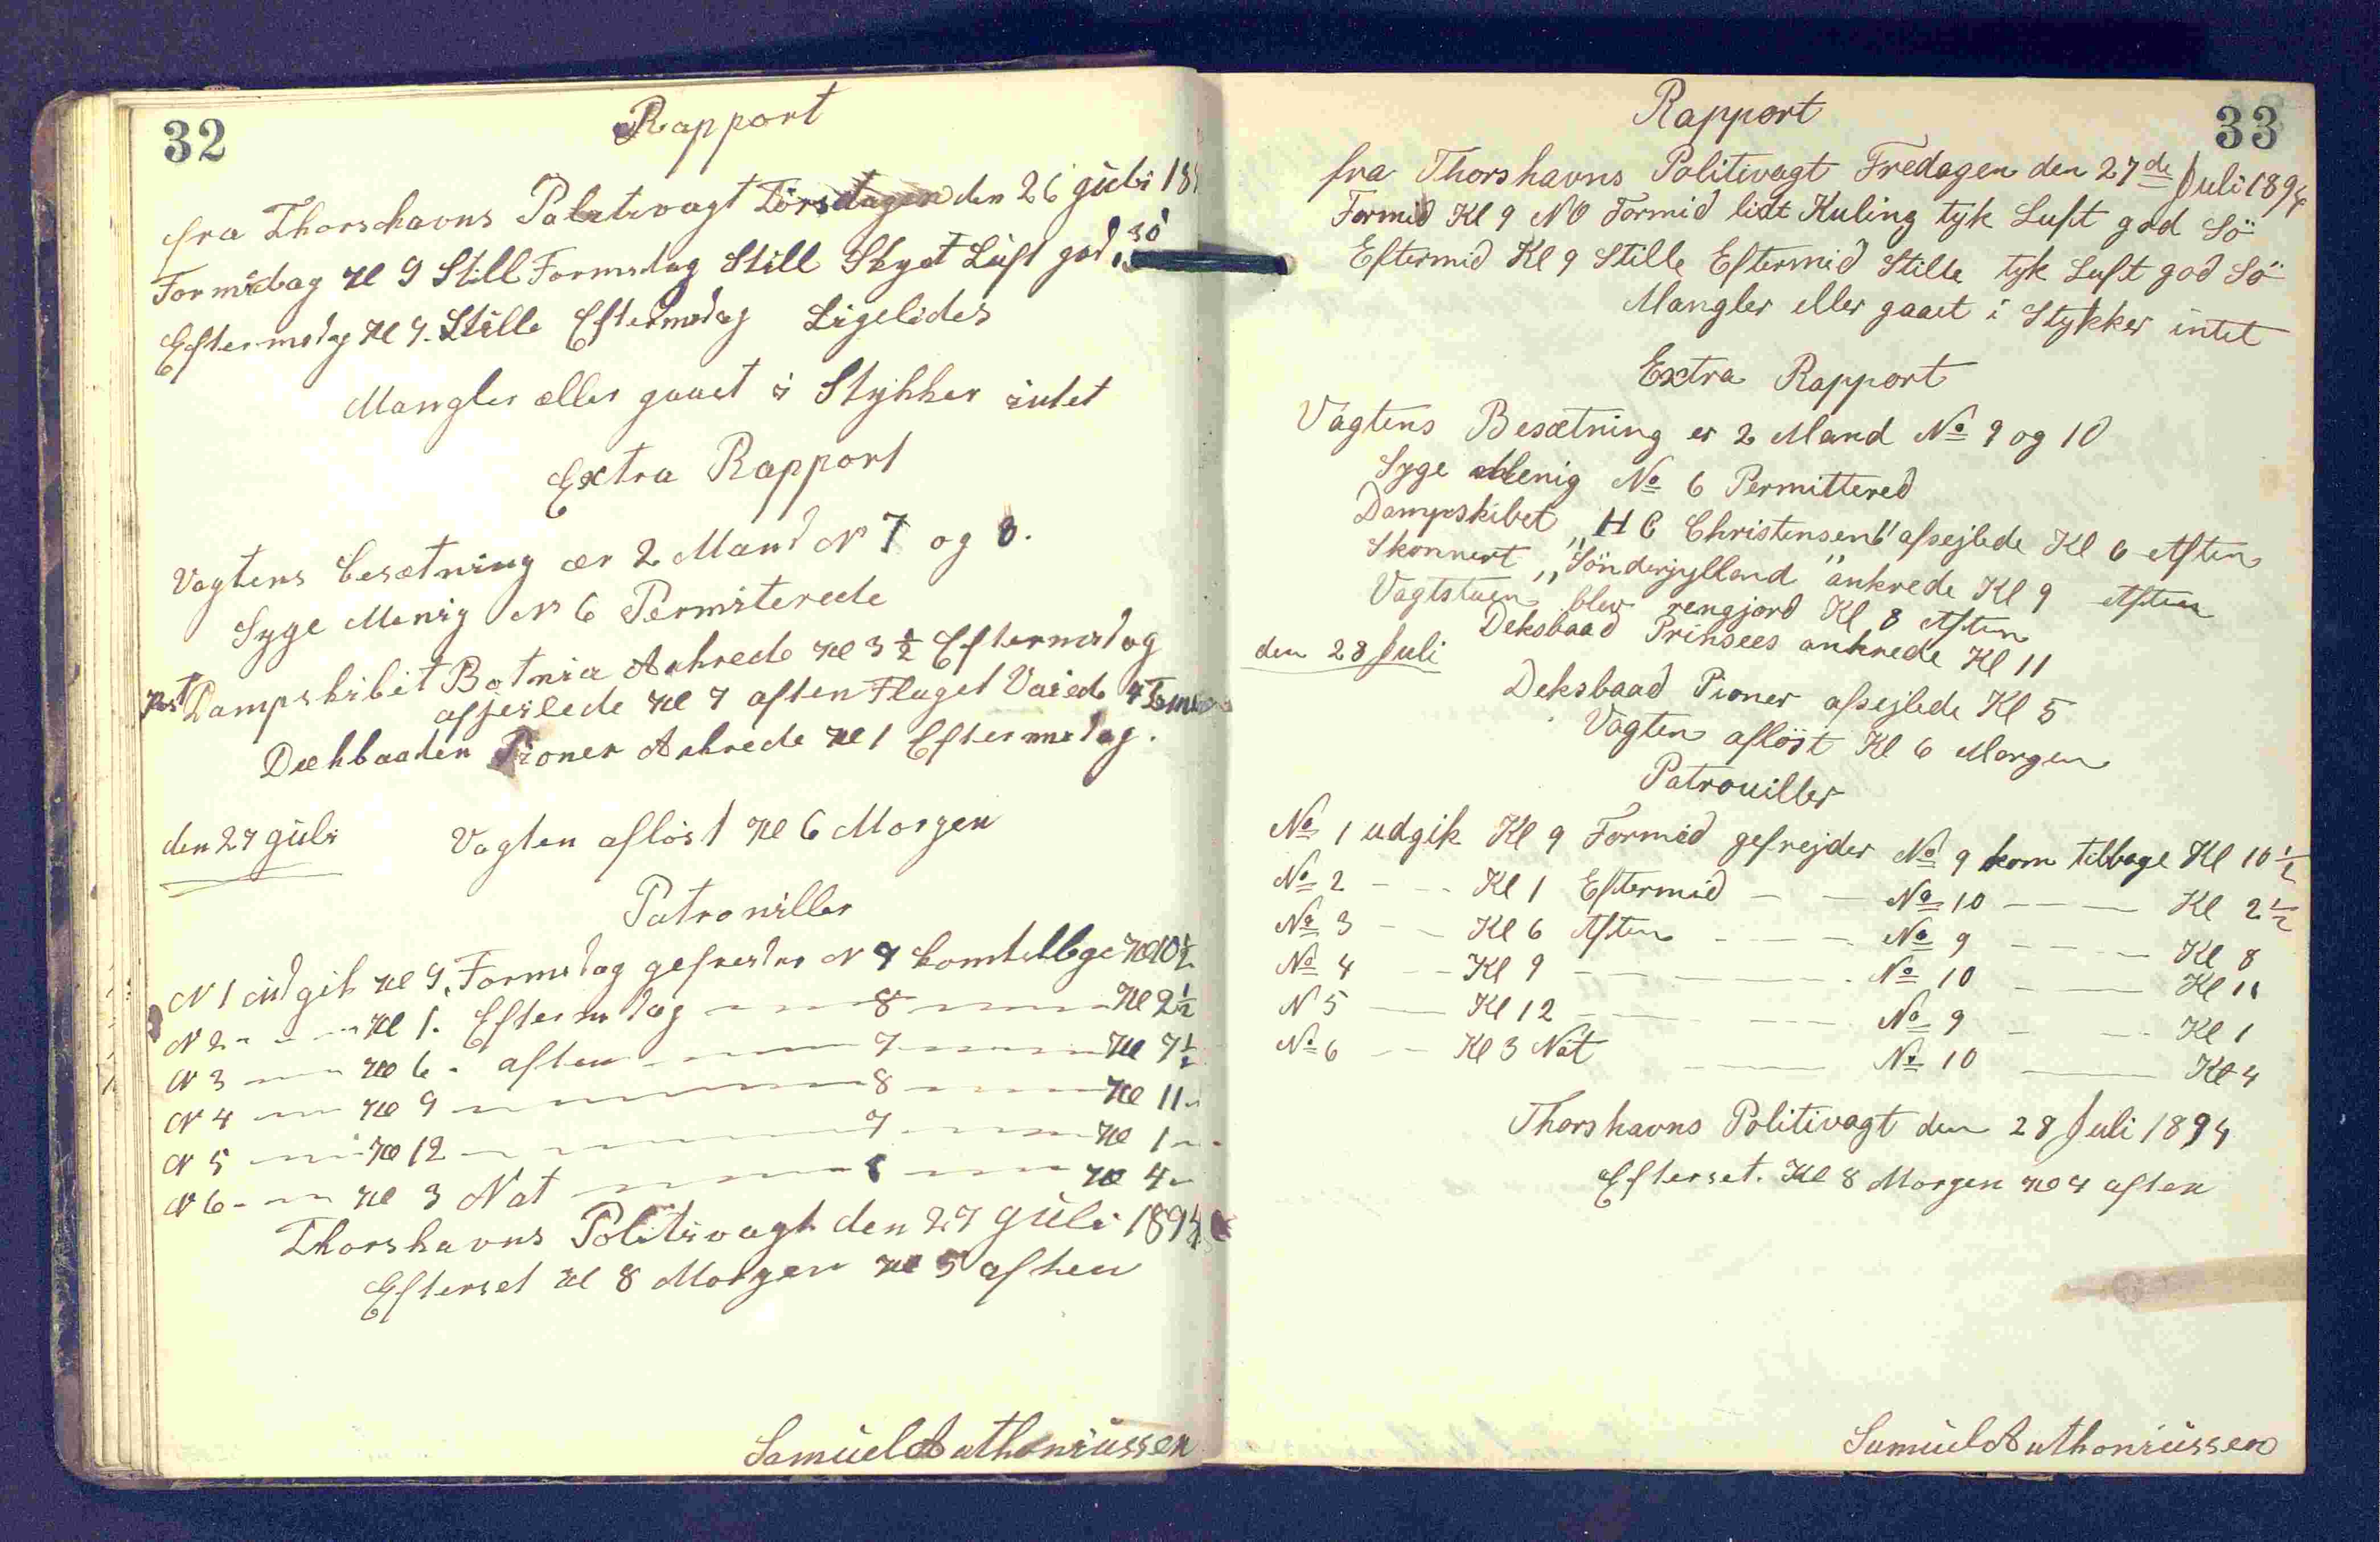 32
Rapport
fra Thorshavns Politivagt Törsdagen den 26 Juli 18
Formidag Kl 9 Still Formidag Still Skyet Luft god Sö
Eftermidag Kl 9. Stille Eftermidag Ligelides
Mangler eller gaaet i Stykker intet
Extra Rapport
Vagtens besætning er 2 Mand N 7 og 8.
Syge Menig N 6 Permiterede
Post Dampskibet Botnia Ankrede Kl 3 ½ Eftermidag
afsejlede Kl 7 aften Flaget Vaiede 4
Dækbaaden Pioner Ankrede Kl 1 Eftermidag.
den 27 Juli Vagten afløst Kl 6 Morgen
Patrouiller
N 1 udgik Kl 9. Formidag gefrejder N 7 kom tilbage Kl 10½
N 2 - - - Kl 1. Eftermidag - - - 8 - - - Kl 2½
N 3 - - - Kl 6. aften - - - 7 - - - Kl 7½
N 4 - - - Kl 9 - - - 8 - - - Kl 11
N 5 - - - Kl 12 - - - 7 - - - Kl 1
N 6 - - - Kl 3 Nat - - - 8 - - - Kl 4
Thorshavns Politivagt den 27 Juli 1894
Efterset Kl 8 Morgen Kl 5 aften
Samuel Anthoniussen
33
Rapport
fra Thorshavns Politivagt Fredagen den 27de Juli 1894
Formid Kl 9 NO Formid lidt Kuling tyk Luft god Sö
Eftermid Kl 9 Stille Eftermid Stille tyk Luft god Sö
Mangler eller gaaet i Stykker intet
Extra Rapport
Vagtens Besætning er 2 Mand No 9 og 10
Syge Menig No 6 Permittered
Dampskibet „H C Christensen" afsejlede Kl 6 Aften
Skonnert „Sönderjylland" ankrede Kl 9 Aften
Vagtstuen blev rengjord Kl 8 Aften
Deksbaad Prinsees ankrede Kl 11
den 28 Juli
Deksbaad Pioner afsejlede Kl 5
Vagten aflöst Kl 6 Morgen
Patrouiller
No 1 udgik Kl 9 Formid gefrejder No 9 kom tilbage Kl 10 ½
No 2 - - - Kl 1 Eftermid - - No 10 - - - Kl 2 ½
No 3 - - Kl 6 Aften - - - No 9 - - - Kl 8
No 4 - - Kl 9 - - - No 10 - - - Kl 11
N 5 - - Kl 12 - - - No 9 - - - Kl 1
No 6 - - Kl 3 Nat - - - No 10 - - - Kl 4
Thorshavns Politivagt den 28 Juli 1894
Efterset. Kl 8 Morgen Kl 4 aften
Samuel Anthoniussen